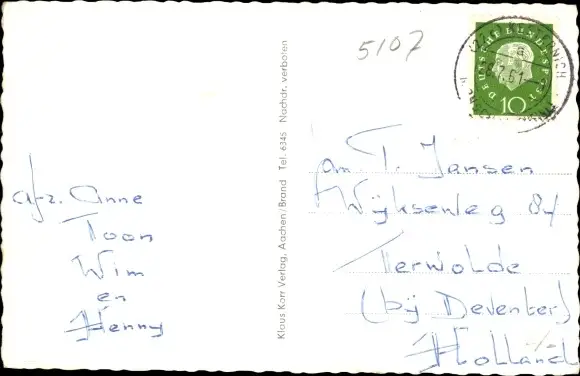 5107
DEUTSCHE BUNDESPOST
10
afz. Anne
Toon
Wim
en
Henny
Klaus Karr Verlag, Aachen/Brand Tel. 6345 Nachdr. verboten
fam T. Jansen
Wijkseweg 84
Terwolde
(bij Deventer)
Holland